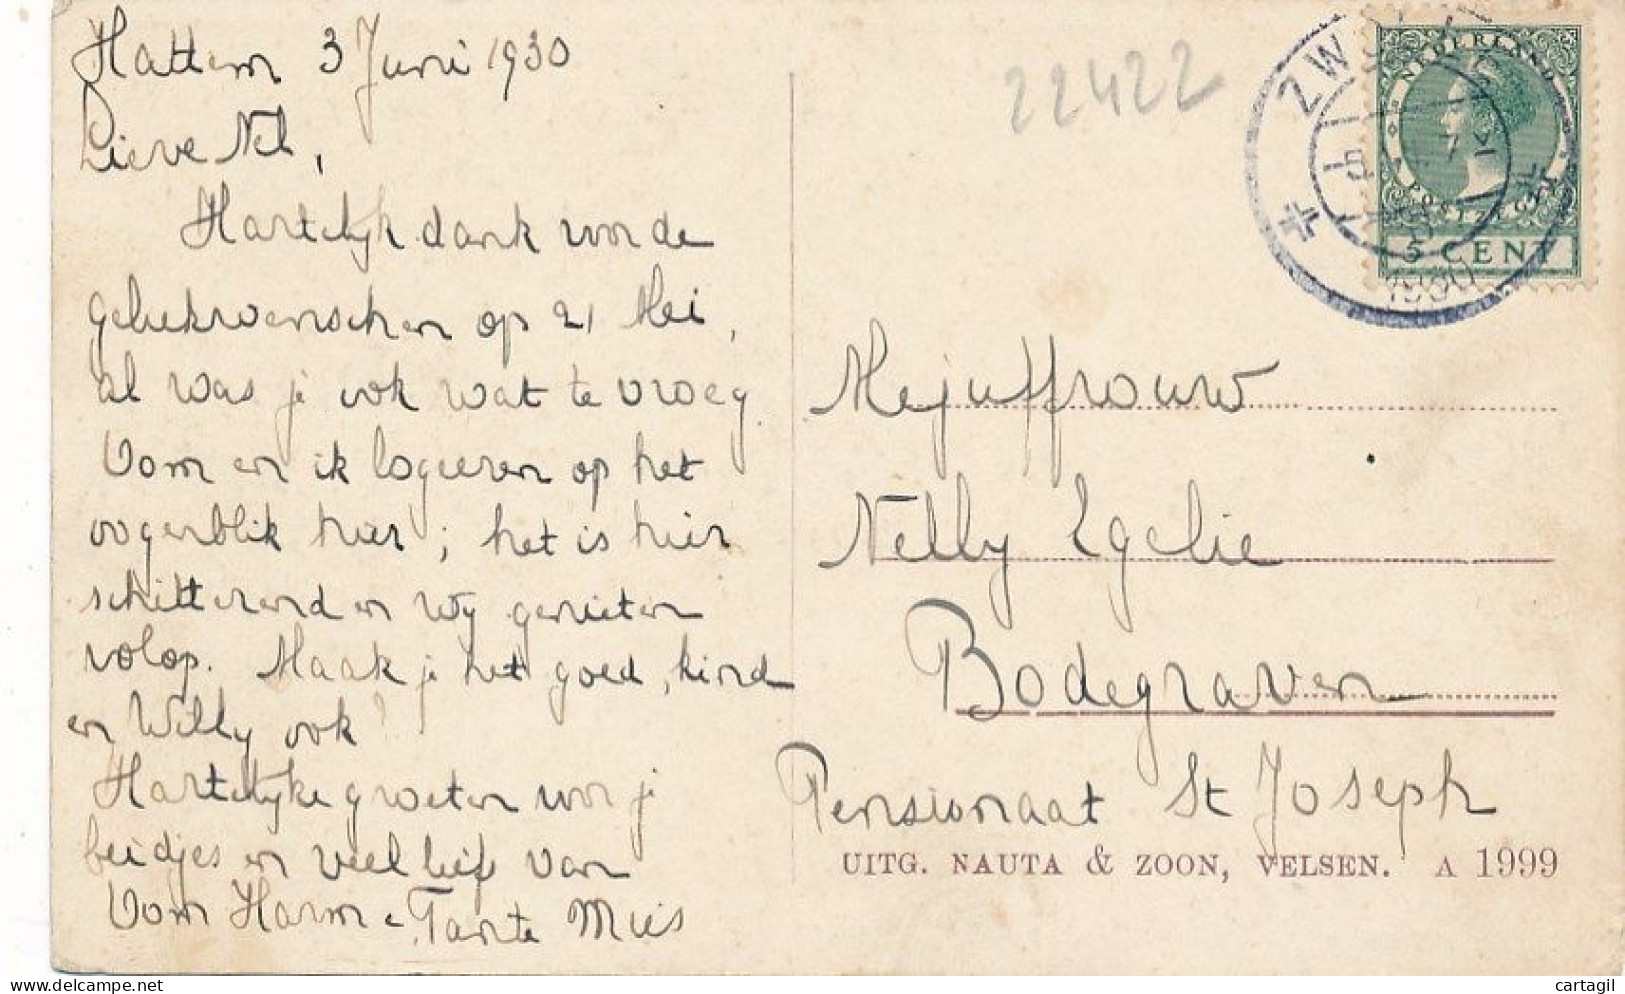 Hattem 3 Juni 1930
Lieve Nel,
Hartelijk dank voor de
gelukwenschen op 21 Mei,
al was je ook wat te vroeg.
Oom en ik logeeren op het
oogenblik hier; het is hier
schitterend en wij genieten
volop. Maak je het goed, kind
en Willy ook?
Hartelijke groeten voor je
beidjes en veel liefs van
Oom Harm & Tante Mies
22422
ZWOLLE
1930
NEDERLAND
POSTZEGEL
5 CENT
Mejuffrouw
Nelly Egelie
Bodegraven
Pensionaat St Joseph
UITG. NAUTA & ZOON, VELSEN. A 1999
delcampe.net
cartagil